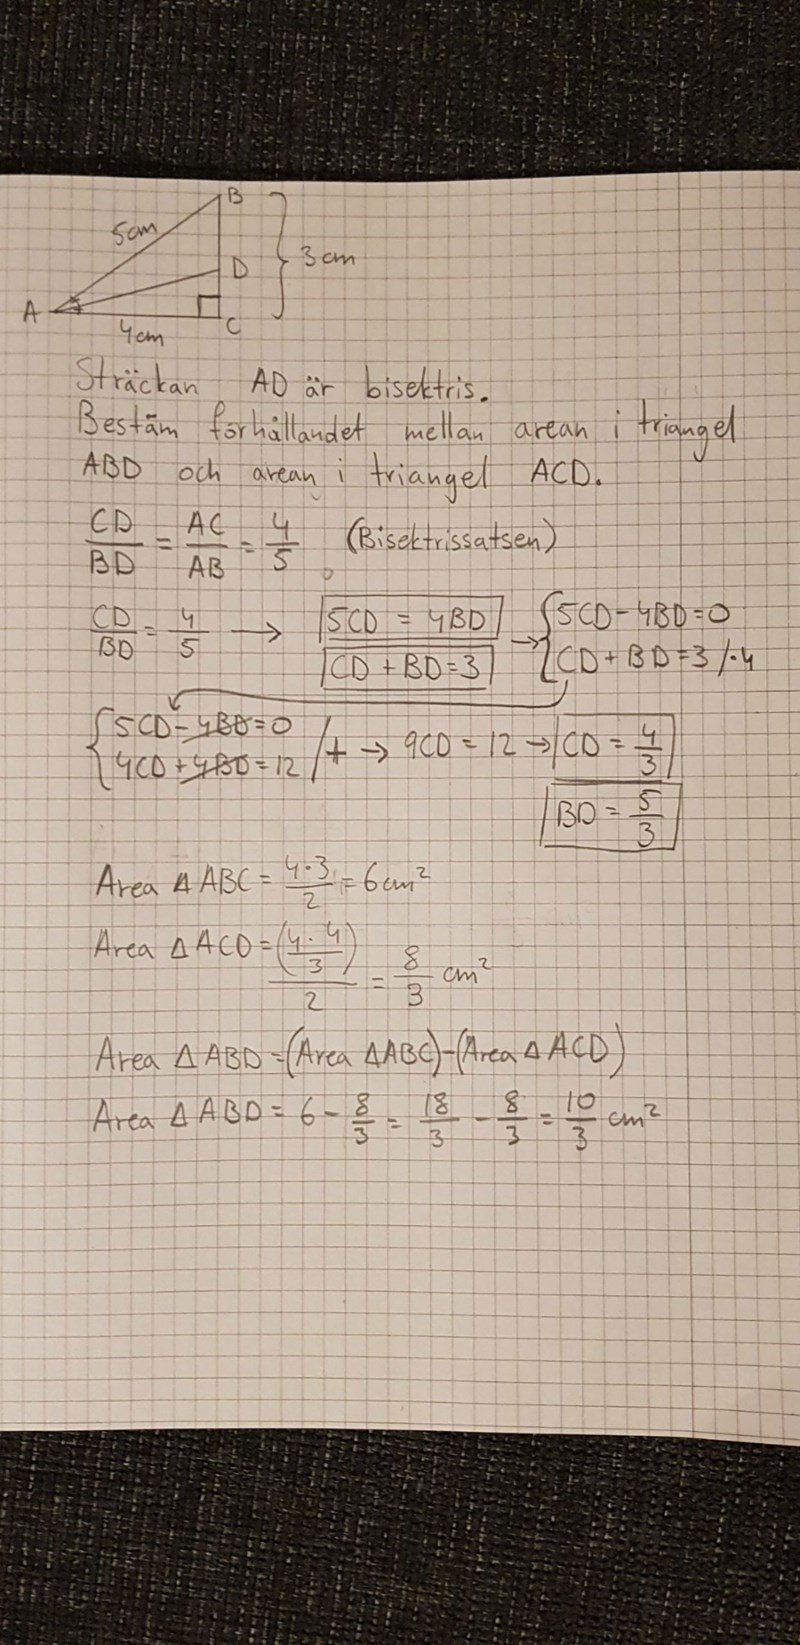 B
5cm
D
3cm
A
C
4cm
Sträckan AD är bisektris.
Bestäm förhållandet mellan arean i triangel
ABD och arean i triangel ACD.
CD/BD = AC/AB = 4/5 (Bisektrissatsen)
CD/BD = 4/5 → 5CD = 4BD → {5CD-4BD=0
CD+BD=3 CD+BD=3 /·4
{5CD-4BD=0
4CD+4BD=12 /+ → 9CD=12 → CD=4/3
BD=5/3
Area ΔABC = 4·3/2 = 6cm²
Area ΔACD = (4·4/3)/2 = 8/3 cm²
Area ΔABD = (Area ΔABC)-(Area ΔACD)
Area ΔABD = 6 - 8/3 = 18/3 - 8/3 = 10/3 cm²